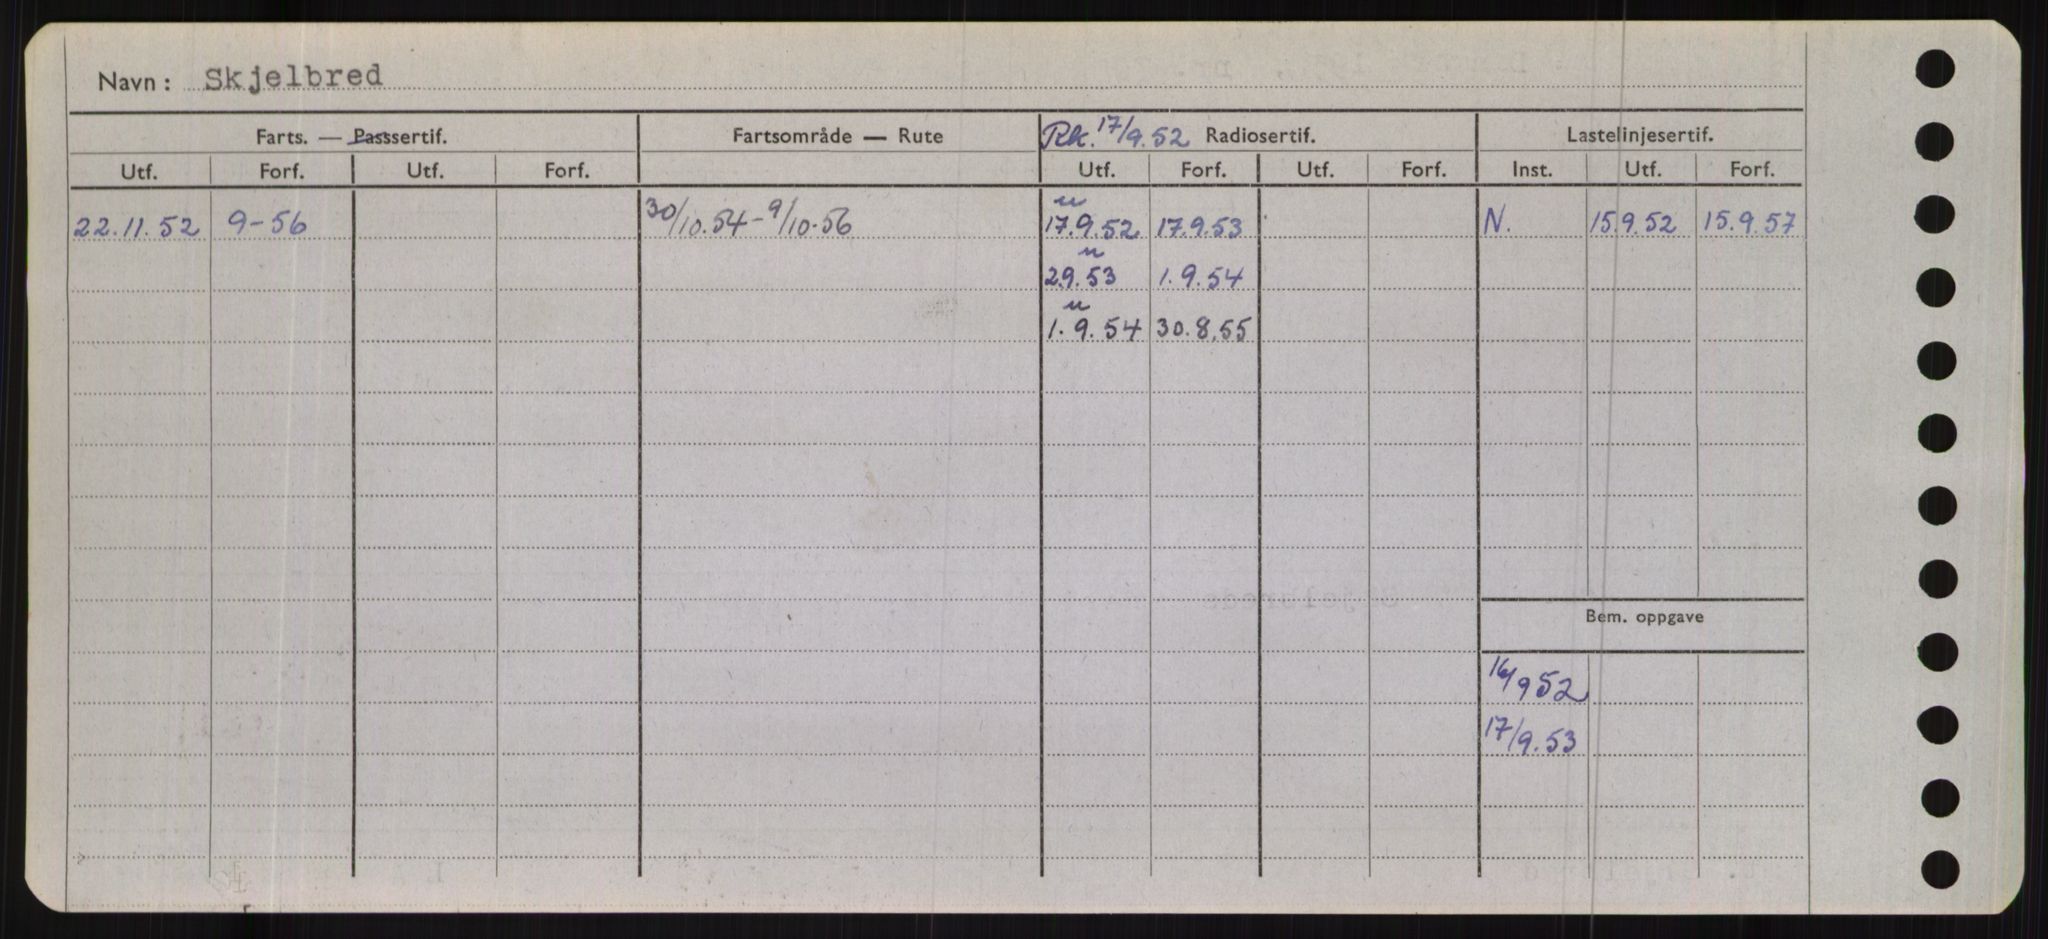 Navn: Skjelbred
Farts. — Passsertif. Fartsområde — Rute Rk. 17/9.52 Radiosertif. Lastelinjesertif.
Utf. Forf. Utf. Forf. Utf. Forf. Utf. Forf. Inst. Utf. Forf.
u
22.11.52 9-56 30/10.54-9/10.56 17.9.52 17.9.53 N. 15.9.52 15.9.57
u
2.9.53 1.9.54
u
1.9.54 30.8.55
Bem. oppgave
16/9 52
17/9.53